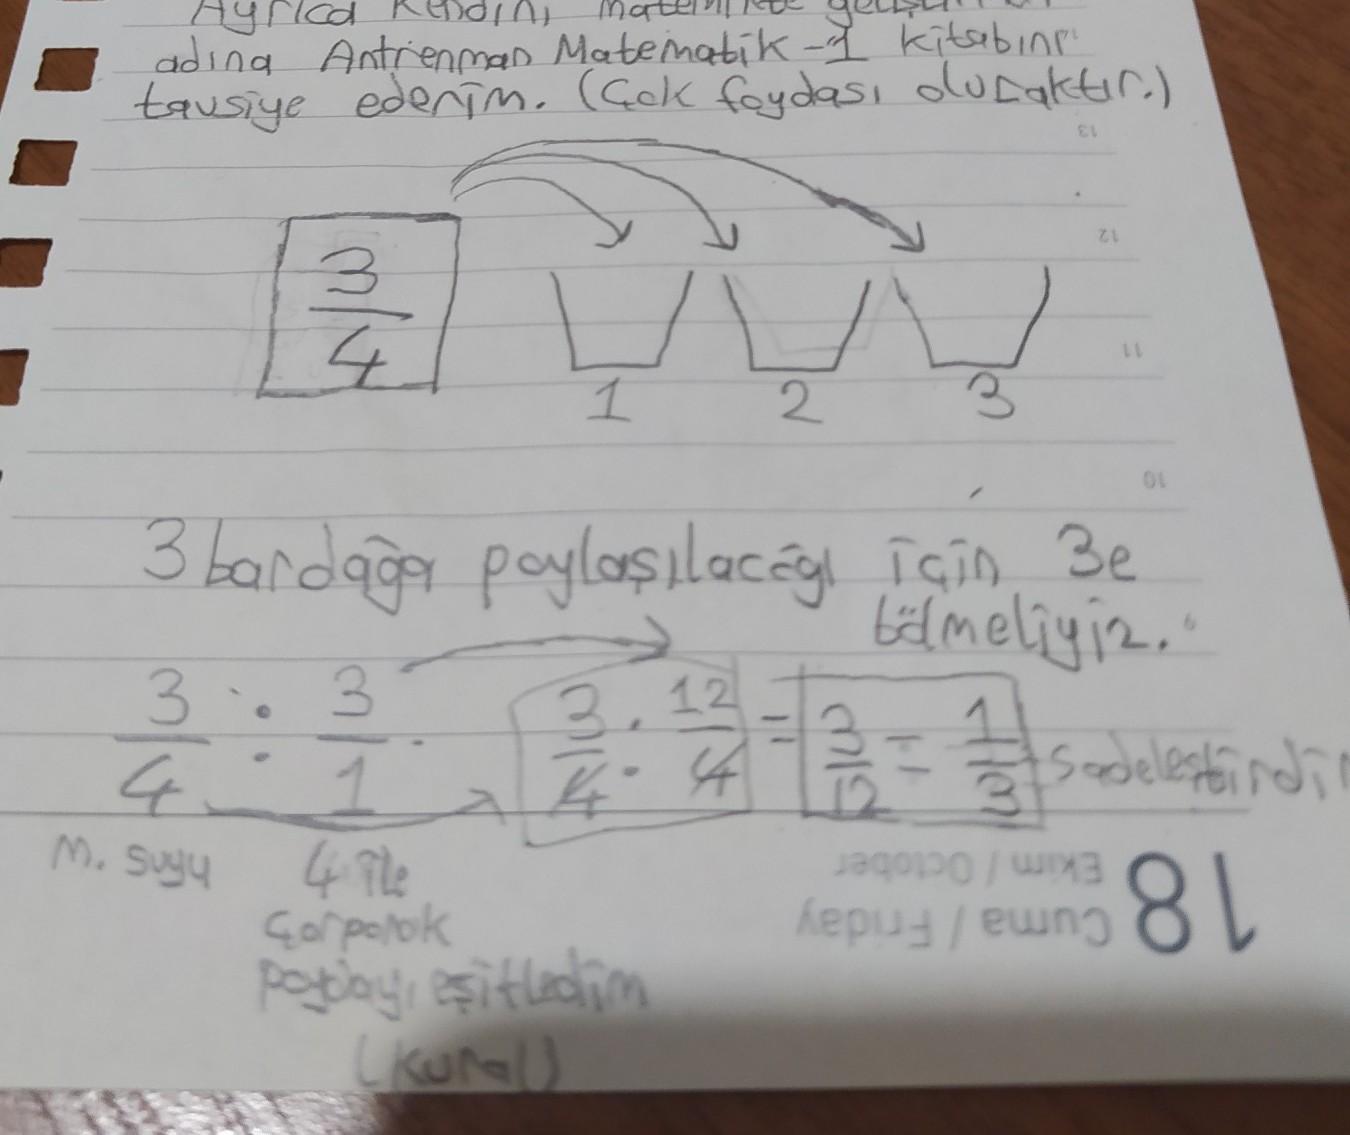 Ayrıca kendini
adına Antrenman Matematik-1 kitabını
tavsiye ederim. (Çok faydası olucaktır.)
13
12
3
4
11
1 2 3
10
3 bardağa paylaşılacağı için 3e
bölmeliyiz.
3/4 : 3/1
3/4 : 12/4 = 3/12 = 1/3 sadeleştirdi
M. suyu
4 ile
çarparak
paydayı eşitledim
(kural)
18
Ekim / October
Cuma / Friday